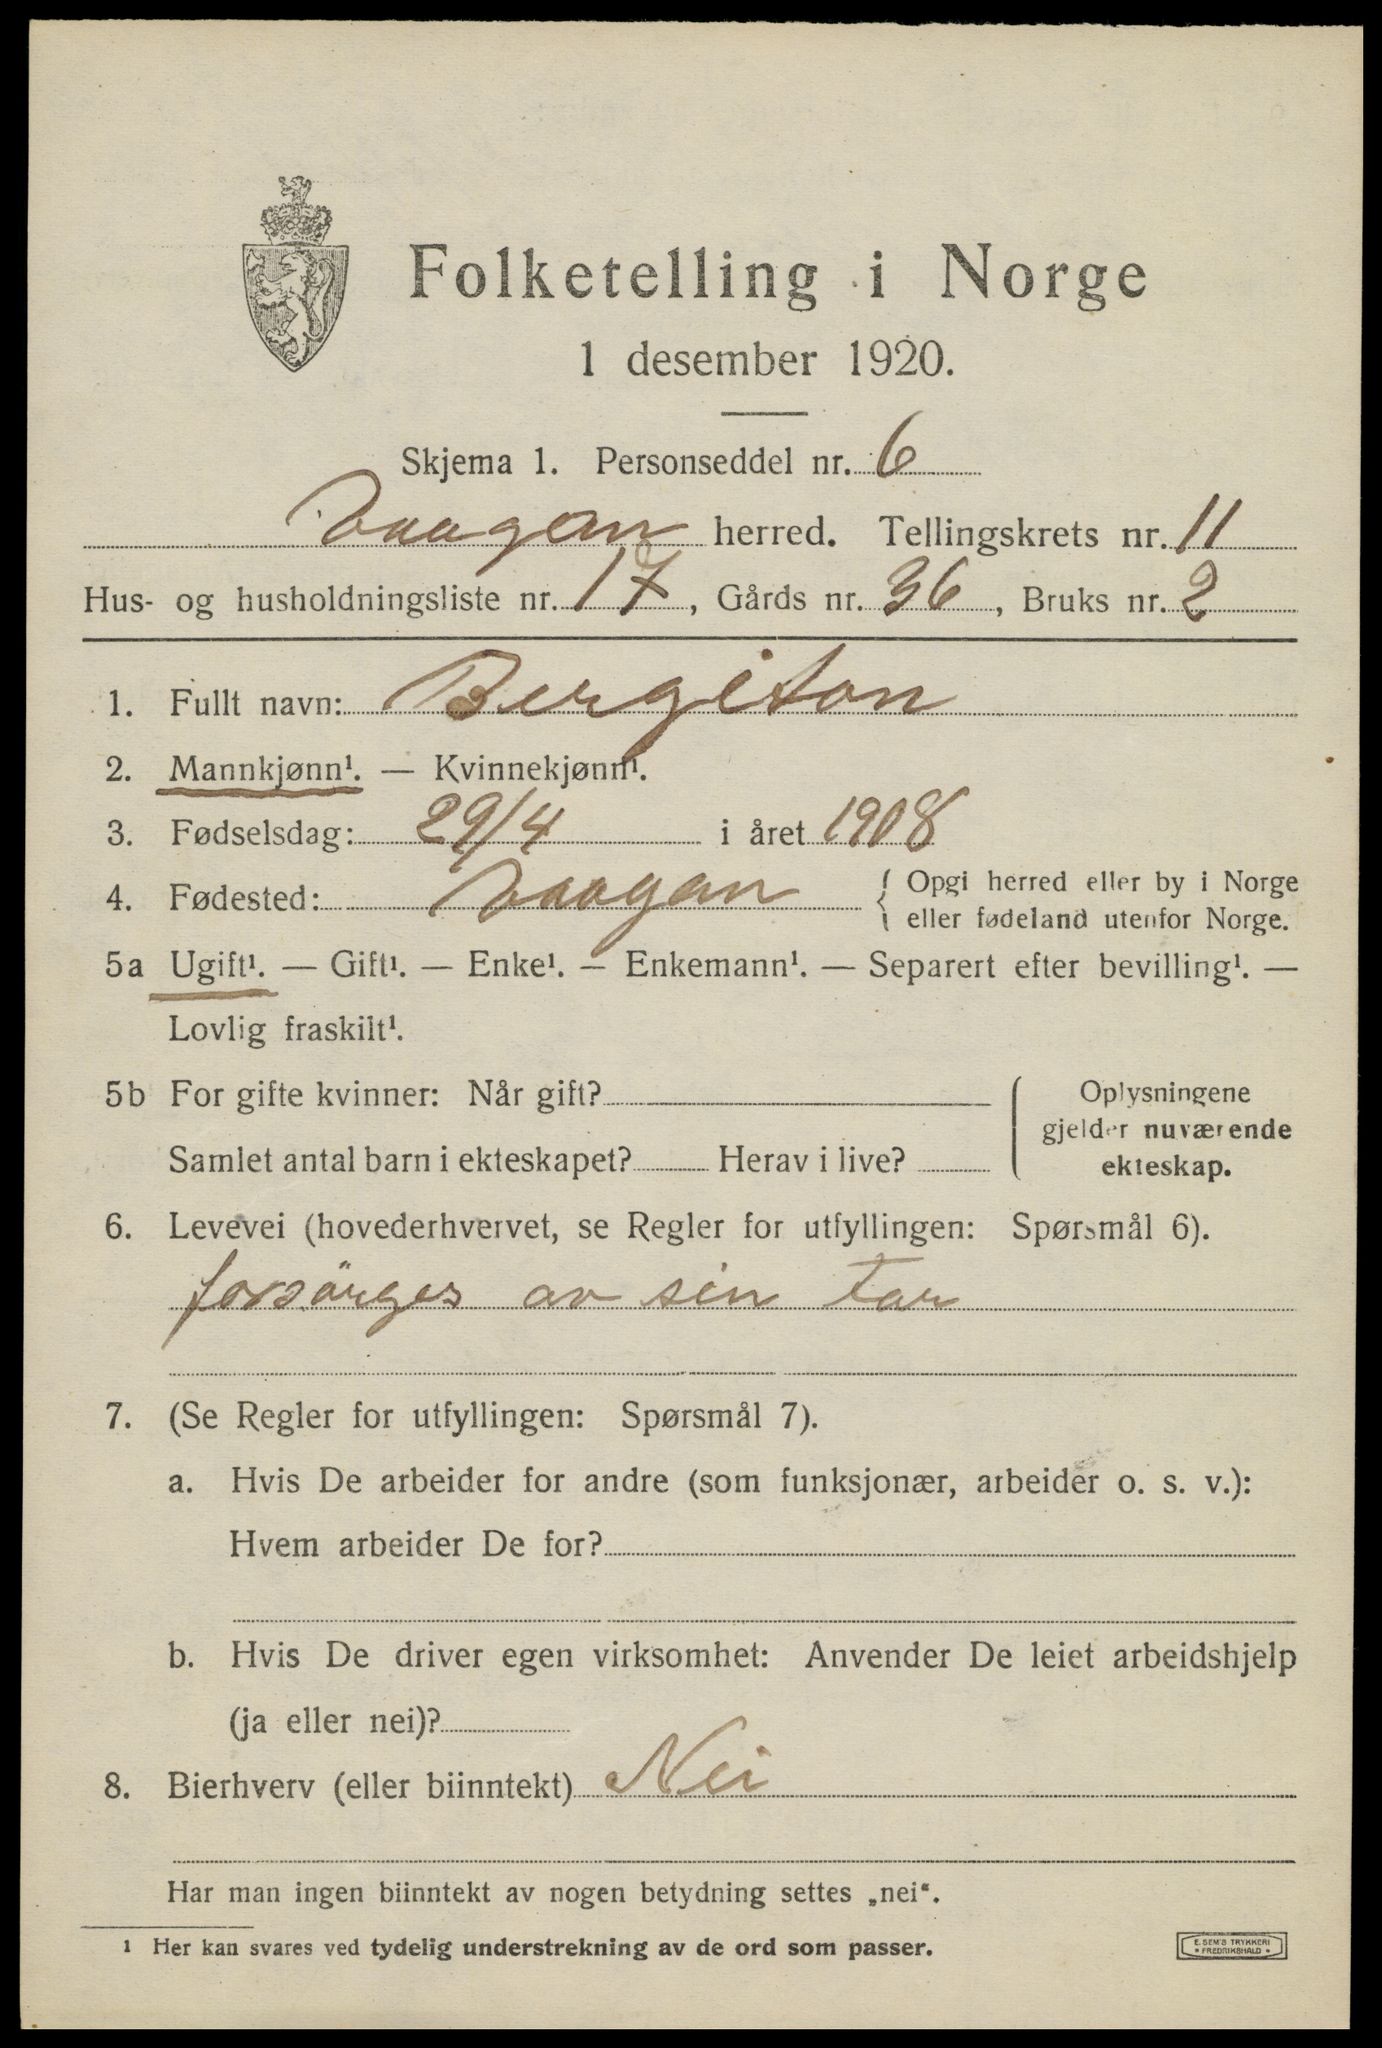 Folketelling i Norge
1 desember 1920.
Skjema 1. Personseddel nr. 6
Vaagan herred. Tellingskrets nr. 11
Hus- og husholdningsliste nr. 17, Gårds nr. 36, Bruks nr. 2
1. Fullt navn: Bergiton
2. Mannkjønn¹. — Kvinnekjønn¹.
3. Fødselsdag: 29/4 i året 1908
4. Fødested: Vaagan { Opgi herred eller by i Norge
eller fødeland utenfor Norge.
5a Ugift¹. — Gift¹. — Enke¹. — Enkemann¹. — Separert efter bevilling¹. —
Lovlig fraskilt¹.
5b For gifte kvinner: Når gift?
Samlet antal barn i ekteskapet? Herav i live?
Oplysningene
gjelder nuværende
ekteskap.
6. Levevei (hovederhvervet, se Regler for utfyllingen: Spørsmål 6).
forsörges av sin Far
7. (Se Regler for utfyllingen: Spørsmål 7).
a. Hvis De arbeider for andre (som funksjonær, arbeider o. s. v.):
Hvem arbeider De for?
b. Hvis De driver egen virksomhet: Anvender De leiet arbeidshjelp
(ja eller nei)?
8. Bierhverv (eller biinntekt) Nei
Har man ingen biinntekt av nogen betydning settes „nei“.
¹ Her kan svares ved tydelig understrekning av de ord som passer.
E. SEM'S TRYKKERI
• FREDRIKSHALD •